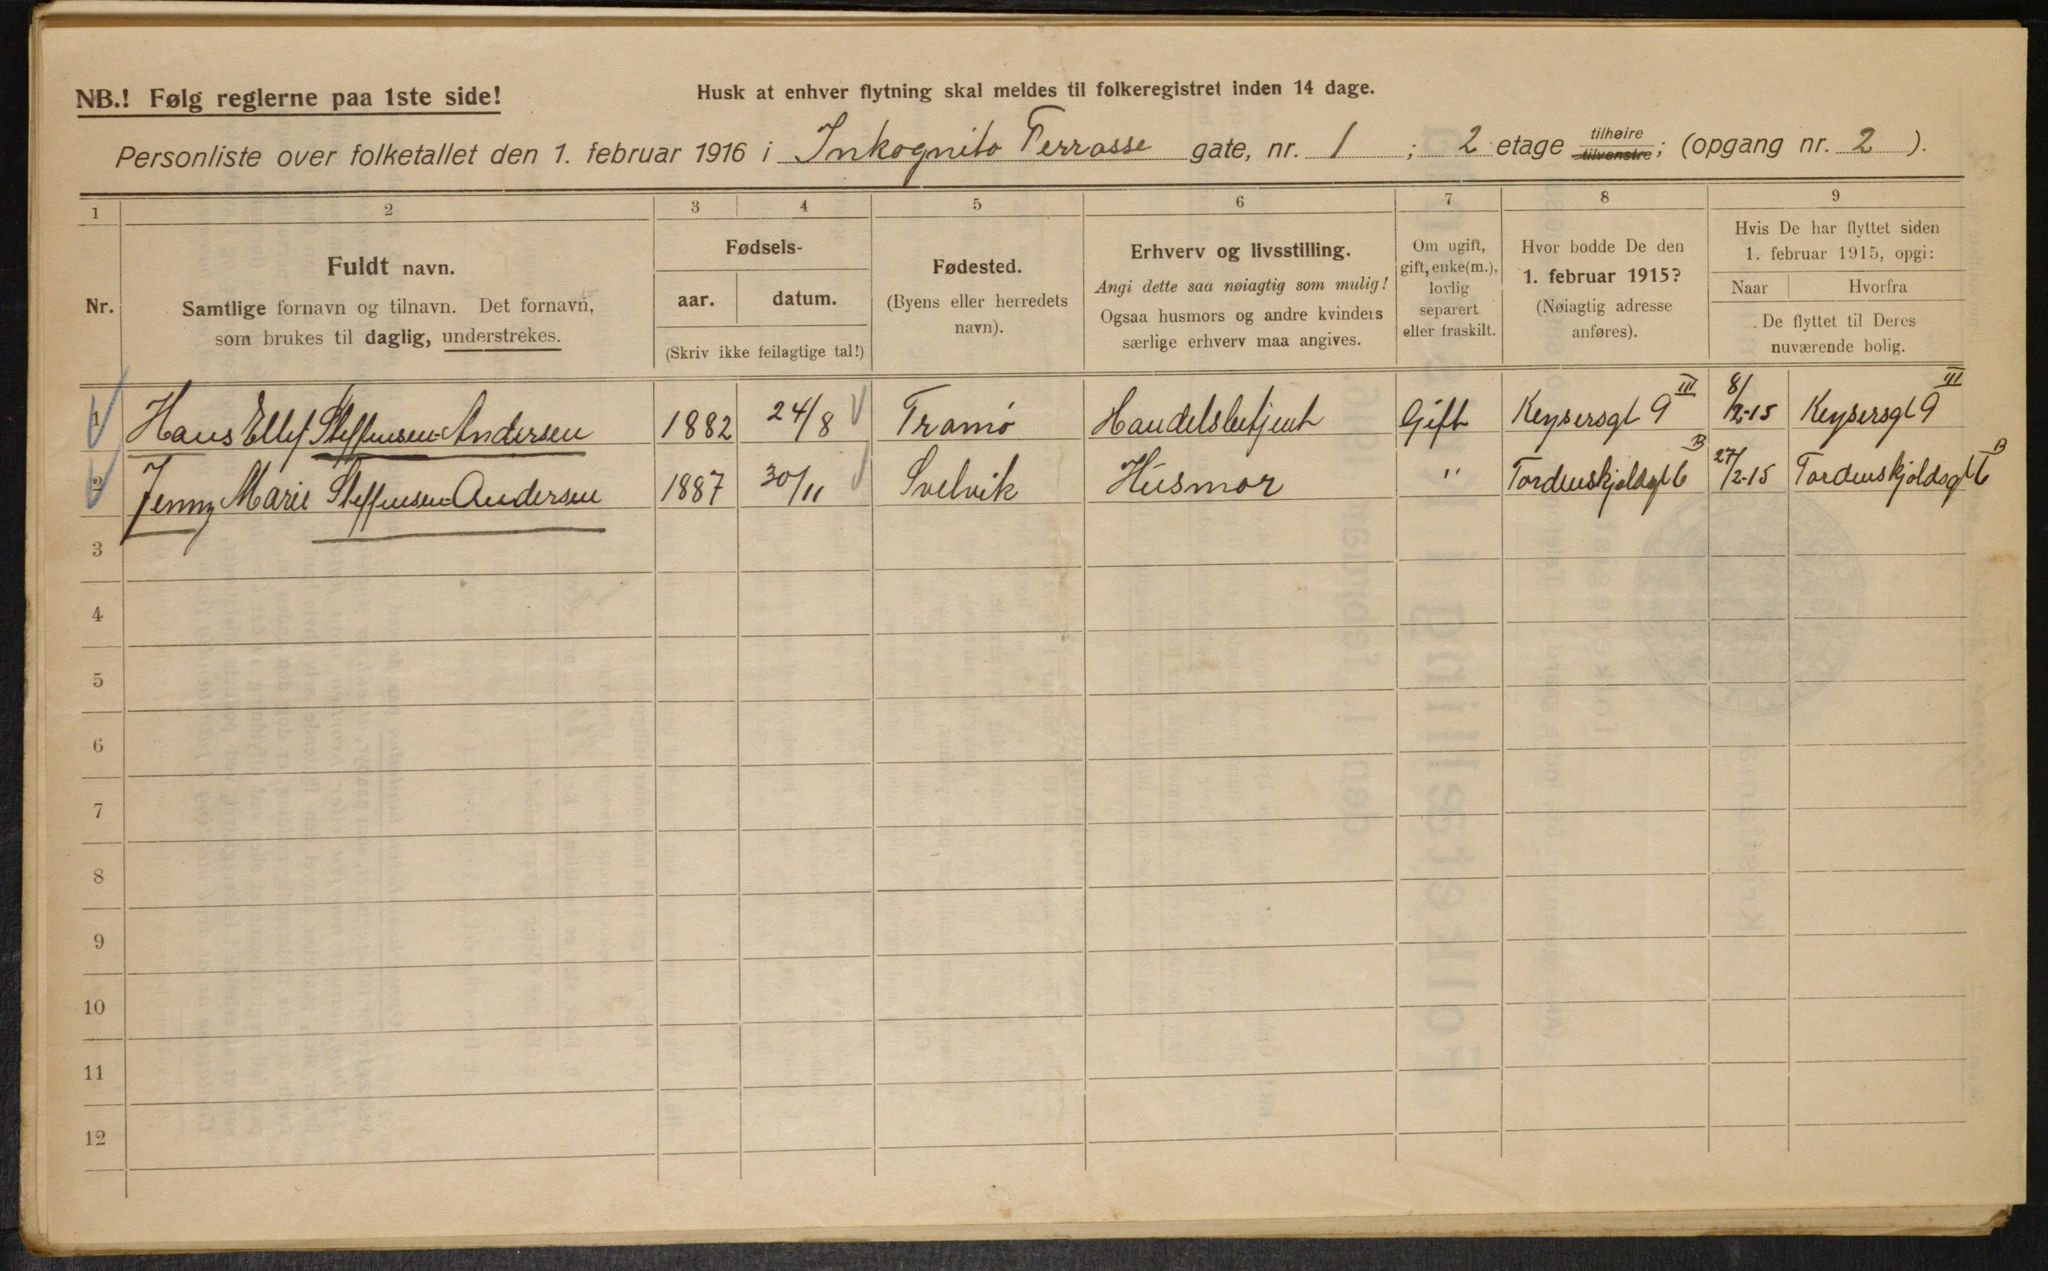 NB.! Følg reglerne paa 1ste side!
Husk at enhver flytning skal meldes til folkeregistret inden 14 dage.
Personliste over folketallet den 1. februar 1916 i Inkognito Terrasse gate, nr. 1 ; 2 etage tilhøire tilvenstre; (opgang nr. 2 ).
1 2 3 4 5 6 7 8 9
Nr.
Fuldt navn.
Samtlige fornavn og tilnavn. Det fornavn,
som brukes til daglig, understrekes.
Fødsels-
aar. datum.
(Skriv ikke feilagtige tal!)
Fødested.
(Byens eller herredets
navn).
Erhverv og livsstilling.
Angi dette saa nøiagtig som mulig!
Ogsaa husmors og andre kvinders
særlige erhverv maa angives.
Om ugift,
gift, enke(m.),
lovlig
separert
eller fraskilt.
Hvor bodde De den
1. februar 1915?
(Nøiagtig adresse
anføres).
Hvis De har flyttet siden
1. februar 1915, opgi:
Naar Hvorfra
De flyttet til Deres
nuværende bolig.
1 Hans Ellef Steffensen-Andersen 1882 24/8 Tromø Handelsbetjent Gift Keysersgt 9 III 8/2-15 Keysersgt 9 III
2 Jenny Marie Steffensen-Andersen 1887 30/11 Svelvik Husmor " Tordenskjoldsgt 6 B 27/2-15 Tordenskjoldsgt 6 B
3
4
5
6
7
8
9
10
11
12